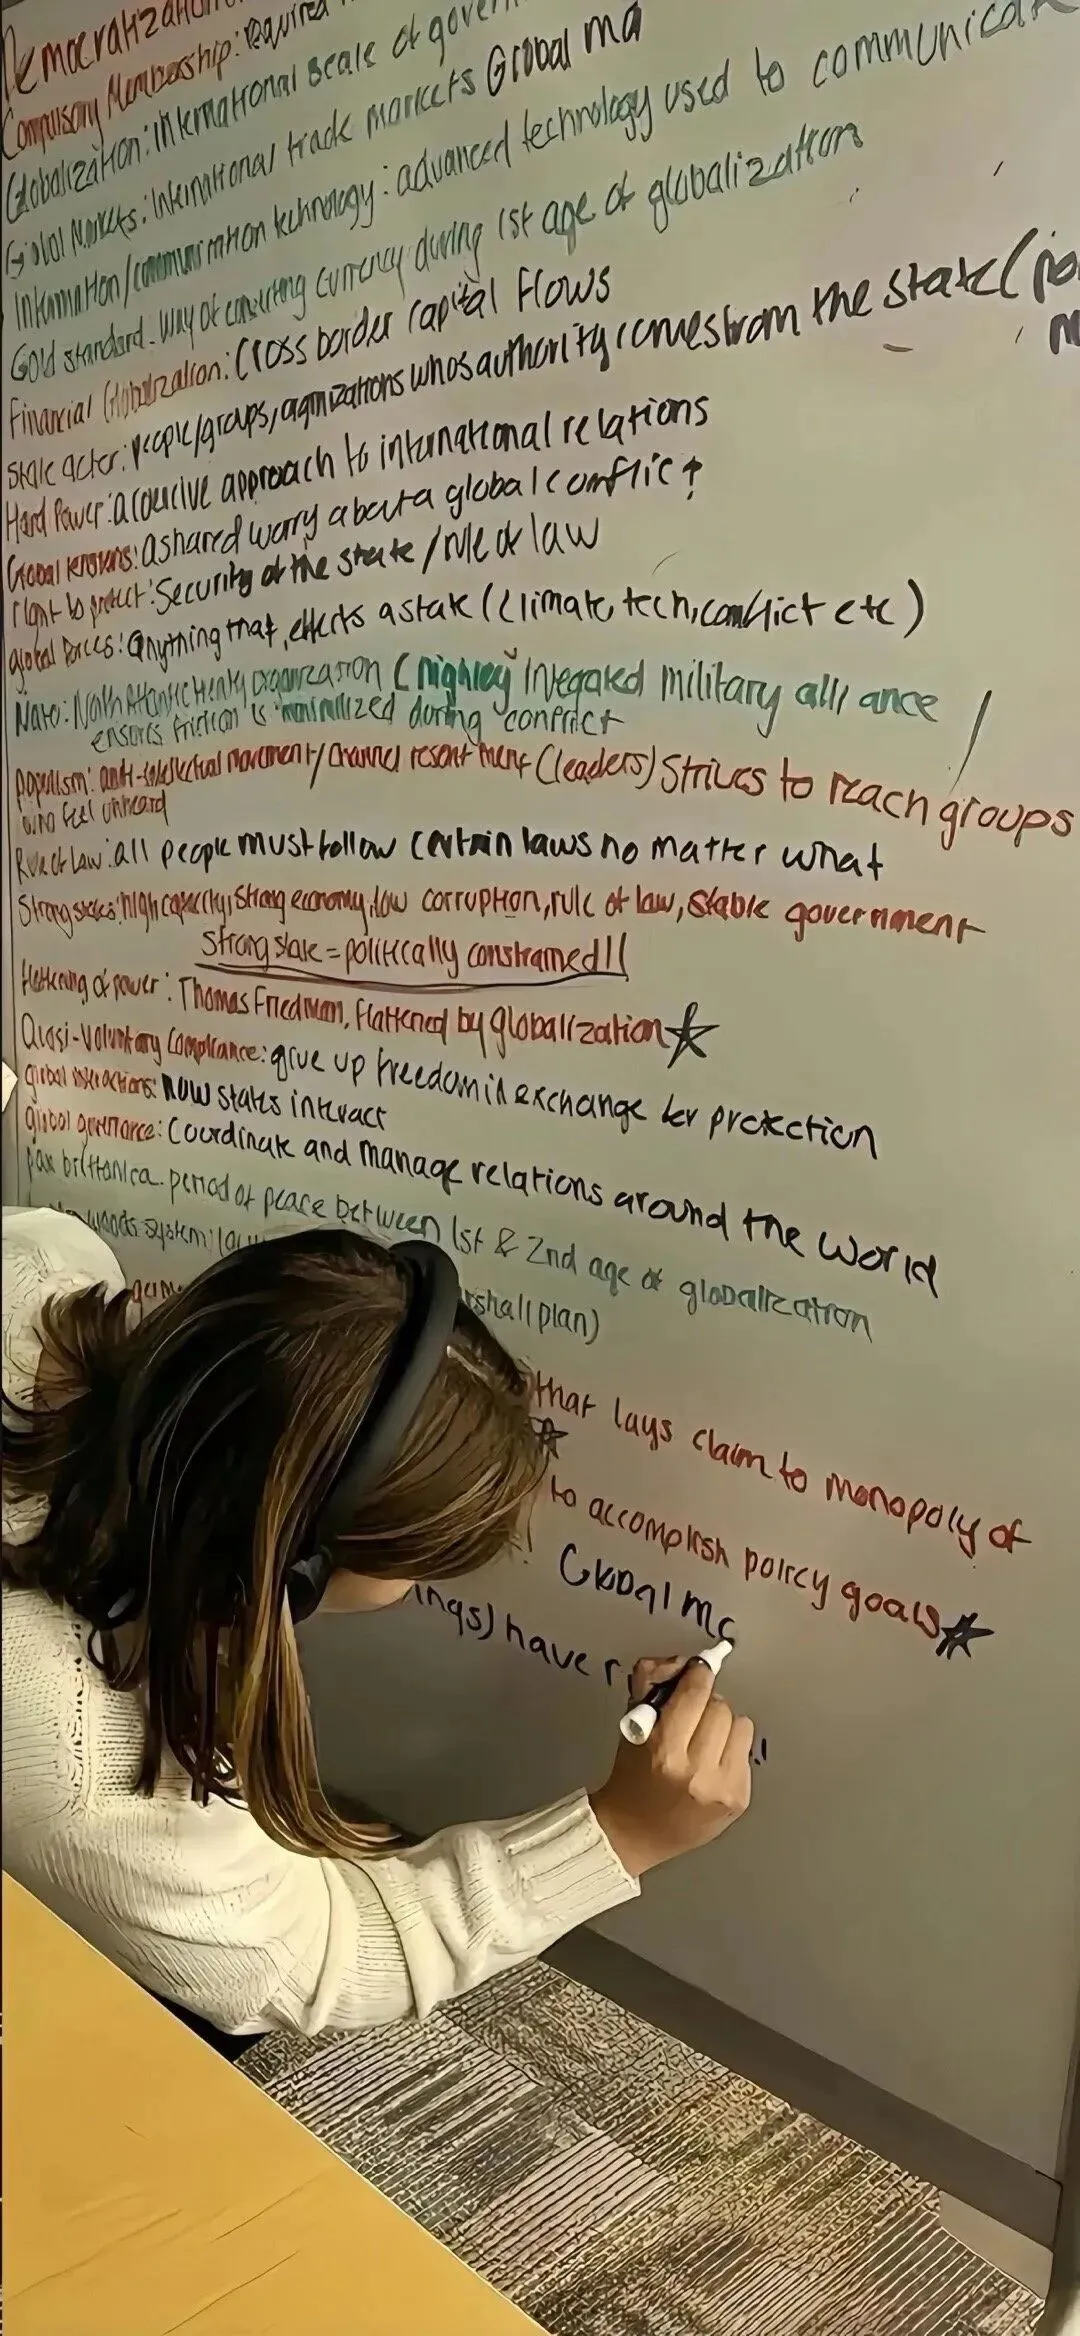 Democratization
Compulsory Membership: required
Globalization: international scale of govern
Global Markets: International track markets Global ma
Information/communication technology: advanced technology used to communicat
Gold standard. way of converting currency during 1st age of globalization
Financial Globalization: Cross border capital flows
State actor: people/groups, organizations whos authority comes from the state (po
M
Hard Power: a coercive approach to international relations
Global tensions: a shared worry about a global conflict
right to protect: Security of the state / rule of law
global forces: anything that effects a state (climate, tech, conflict etc)
Nato: North Atlantic treaty organization (highley integated military alliance
ensures friction is minimilized during conflict
populism: anti-intellectual movement/channel resentment (leaders) Strives to reach groups
who feel unheard
Rule of Law: all people must follow certain laws no matter what
Strong states: high capacity, strong economy, low corruption, rule of law, stable government
strong state = politically constrained!!
flattening of power: Thomas Friedman, flattened by globalization
Quasi-Voluntary Compliance: give up freedom in exchange for protection
global interactions: how states interact
global governance: Coordinate and manage relations around the world
pax brittanica. period of peace between 1st & 2nd age of globalization
woods system:
rshall plan)
that lays claim to monopoly of
to accomplish policy goals
Global ma
ings) have r